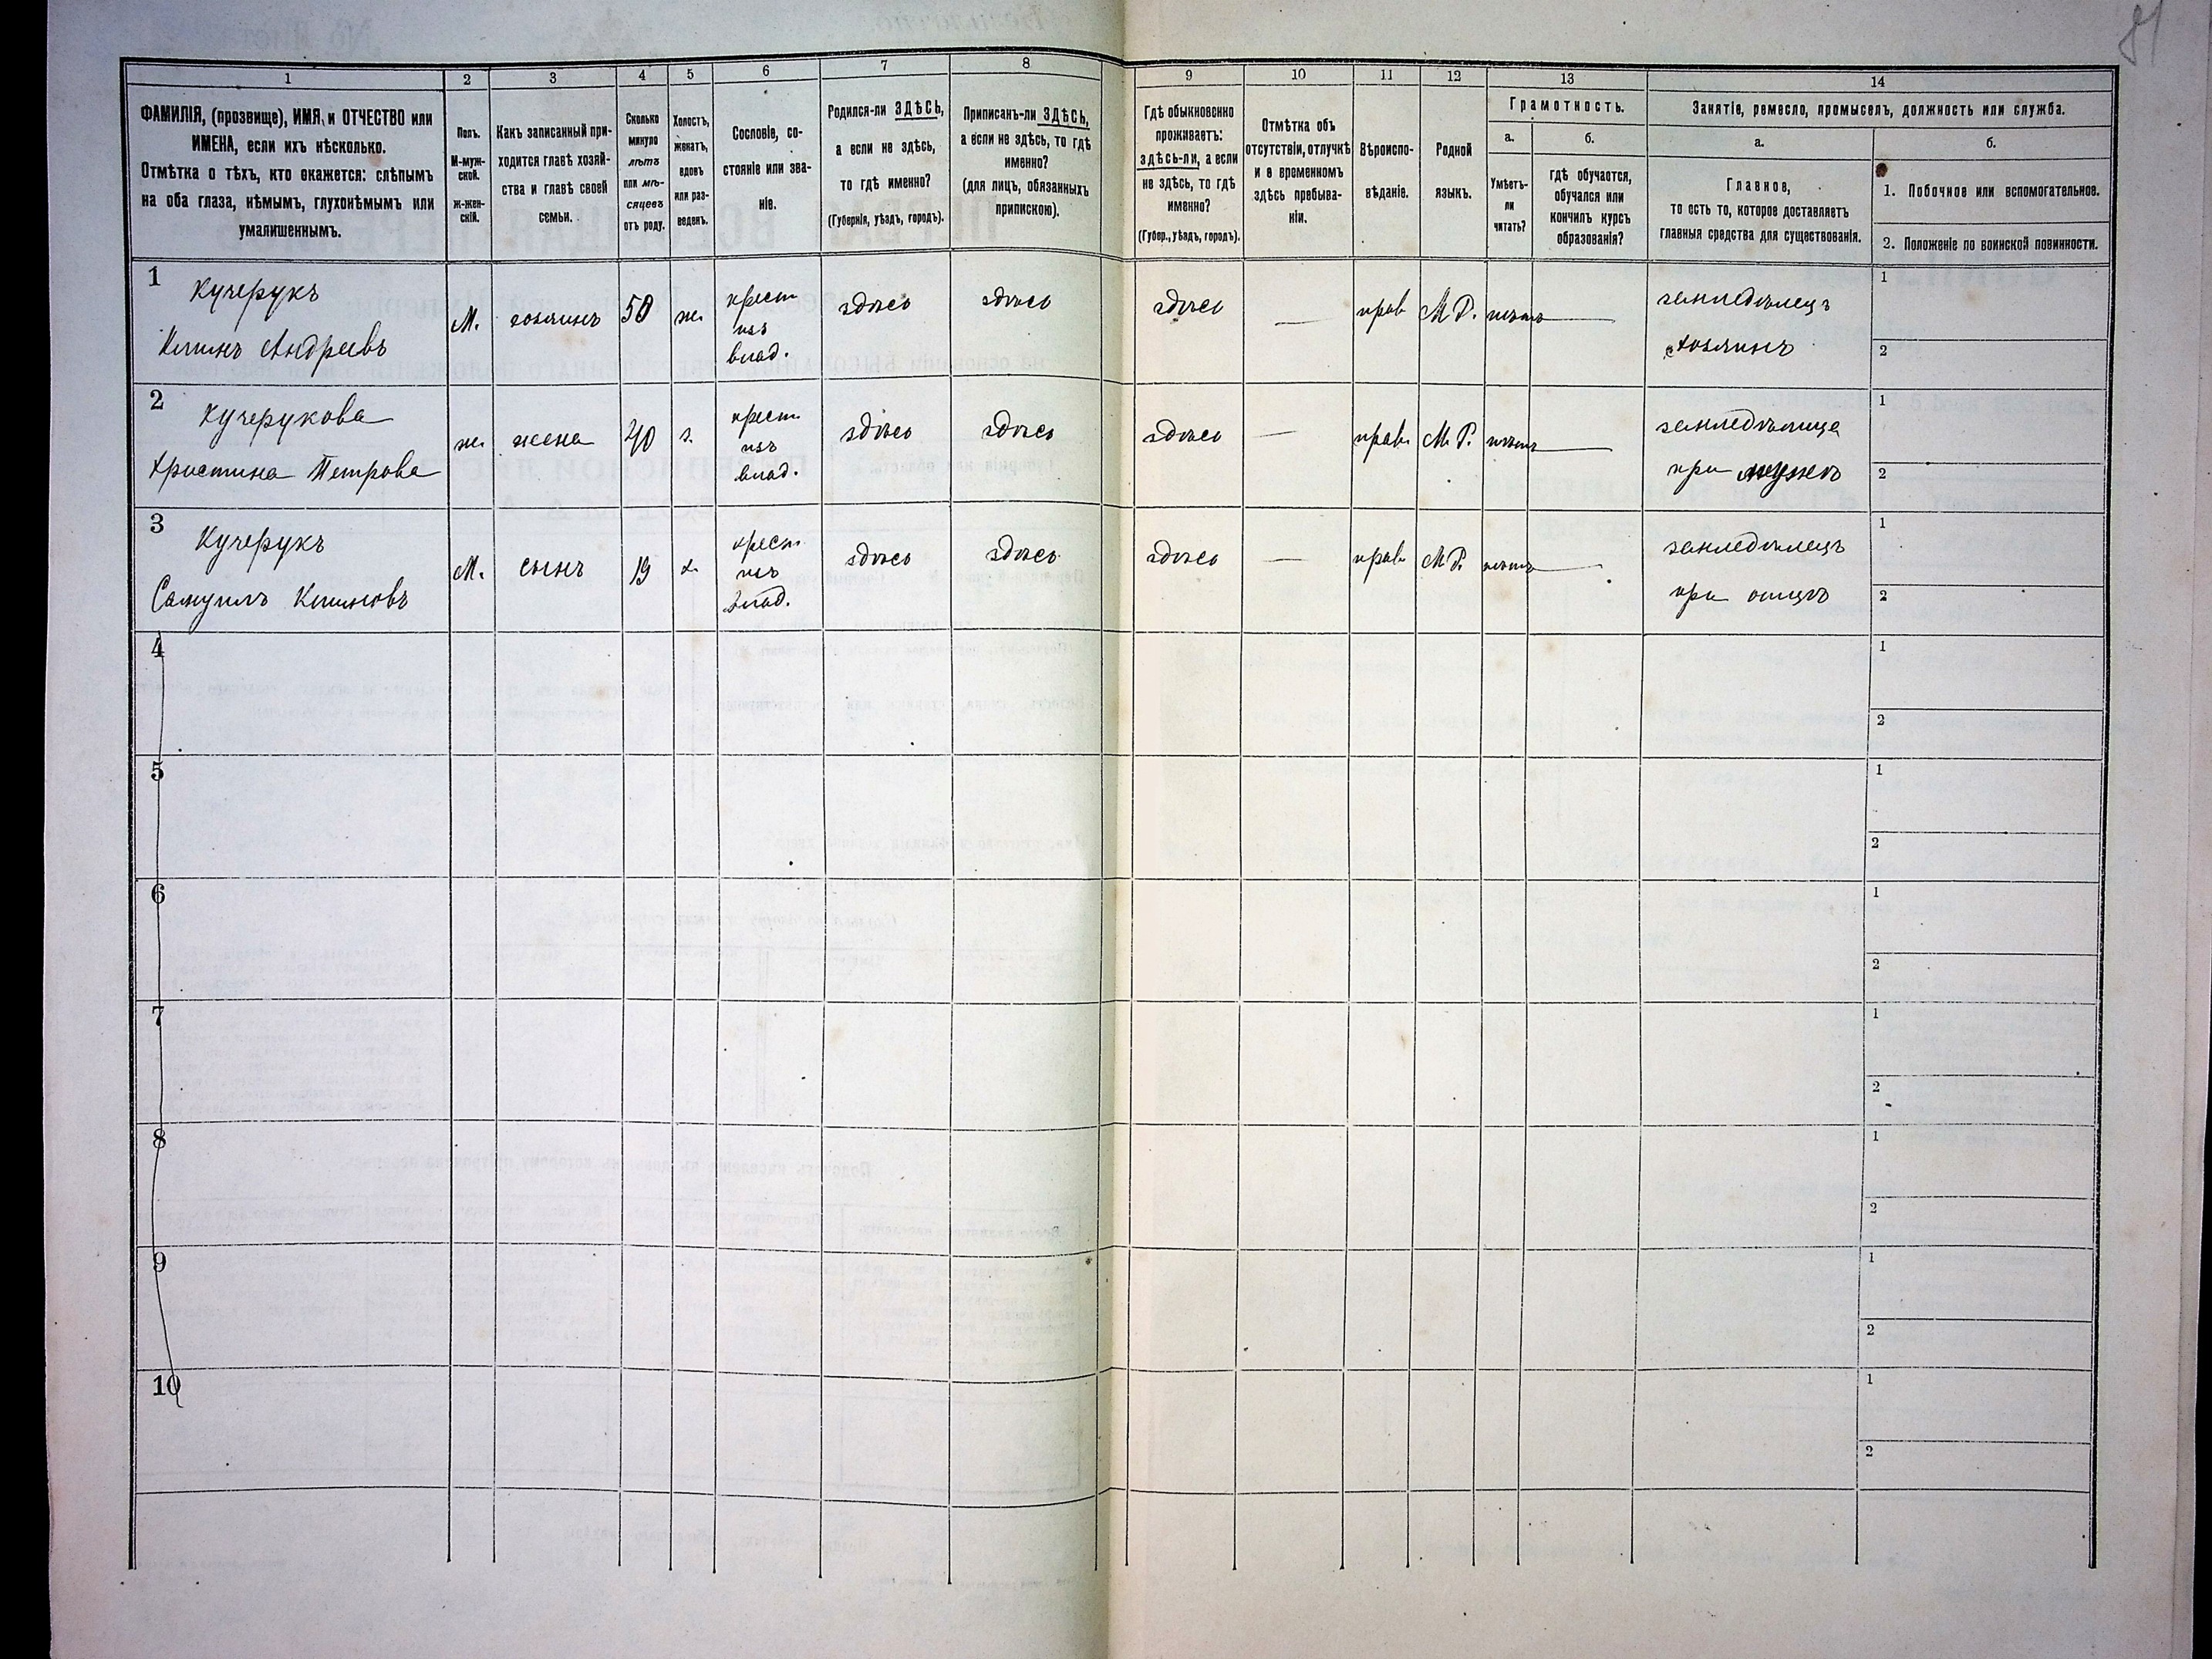 1
2
3
4
5
6
7
8
9
10
11
12
13
14
ФАМИЛІЯ, (прозвище), ИМЯ, и ОТЧЕСТВО или
ИМЕНА, если ихъ нѣсколько.
Отмѣтка о тѣхъ, кто окажется: слѣпымъ
на оба глаза, нѣмымъ, глухонѣмымъ или
умалишеннымъ.
Полъ.
М-муж-
ской.
Ж-жен-
скій.
Какъ записанный при-
ходится главѣ хозяй-
ства и главѣ своей
семьи.
Сколько
минуло
лѣтъ
или мѣ-
сяцевъ
отъ роду.
Холостъ,
женатъ,
вдовъ
или раз-
веденъ.
Сословіе, со-
стояніе или зва-
ніе.
Родился-ли ЗДѢСЬ,
а если не здѣсь,
то гдѣ именно?
(Губернія, уѣздъ, городъ).
Приписанъ-ли ЗДѢСЬ,
а если не здѣсь, то гдѣ
именно?
(для лицъ, обязанныхъ
припискою).
Гдѣ обыкновенно
проживаетъ:
здѣсь-ли, а если
не здѣсь, то гдѣ
именно?
(Губер., уѣздъ, городъ).
Отмѣтка объ
отсутствіи, отлучкѣ
и о временномъ
здѣсь пребыва-
ніи.
Вѣроиспо-
вѣданіе.
Родной
языкъ.
Грамотность.
а.
Умѣетъ-
ли
читать?
б.
гдѣ обучается,
обучался или
кончилъ курсъ
образованія?
Занятіе, ремесло, промыселъ, должность или служба.
а.
Главное,
то есть то, которое доставляетъ
главныя средства для существованія.
б.
1. Побочное или вспомогательное.
2. Положеніе по воинской повинности.
1
Кучерукъ
Климъ Андреевъ
М.
хозяинъ
50
ж.
крест
изъ
влад.
здѣсь
здѣсь
здѣсь
—
прав
М Р.
нѣтъ
земледѣлецъ
хозяинъ
1
2
2
Кучерукова
Христина Петрова
ж.
жена
40
з.
крест
изъ
влад.
здѣсь
здѣсь
здѣсь
—
прав.
М Р.
нѣтъ
земледѣлица
при мужѣ
1
2
3
Кучерукъ
Самуилъ Климовъ
М.
сынъ
19
х.
крест
изъ
влад.
здѣсь
здѣсь
здѣсь
—
прав
М Р.
нѣтъ
земледѣлецъ
при отцѣ
1
2
4
1
2
5
1
2
6
1
2
7
1
2
8
1
2
9
1
2
10
1
2